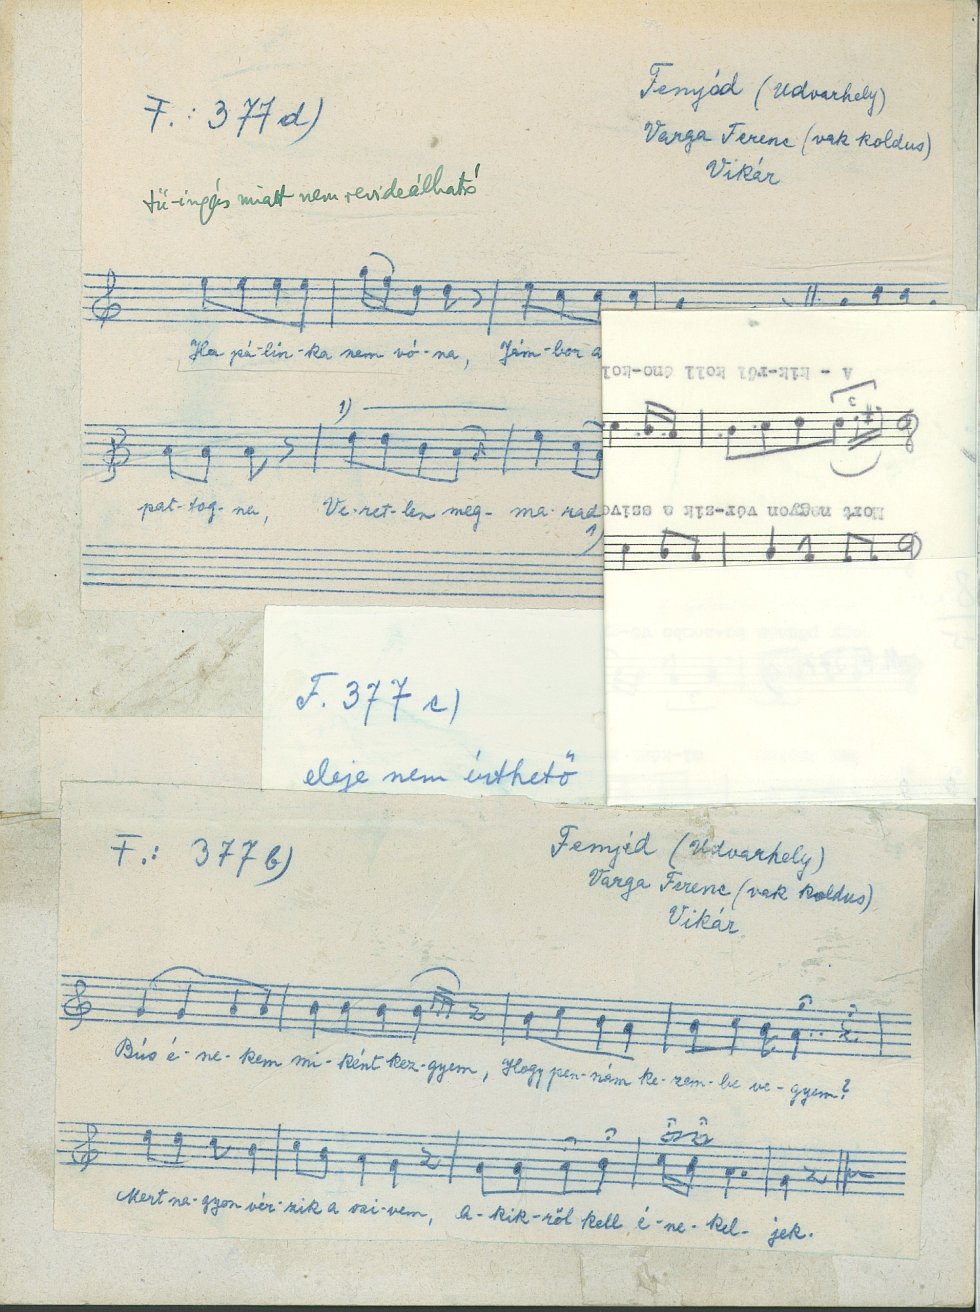 F.: 377 d)
Fenyéd (Udvarhely)
Varga Ferenc (vak koldus)
Vikár
tű-ingás miatt nem revideálható
Ha pá-lin-ka nem vó-na, Jám-bor a
1)
pat-tog-na, Ve-ret-len meg-ma-rad
1)
A - kik-ről kell éno-kel
3
Mert nagyon vér-zik a szive
F. 377 c)
eleje nem érthető
F.: 377 b)
Fenyéd (Udvarhely)
Varga Ferenc (vak koldus)
Vikár
Bús é-ne-kem mi-ként kez-gyem, Hogy pen-nám ke-zem-be ve-gyem?
Mert na-gyon vér-zik a szi-vem, A-kik-ről kell é-ne-kel-jek.